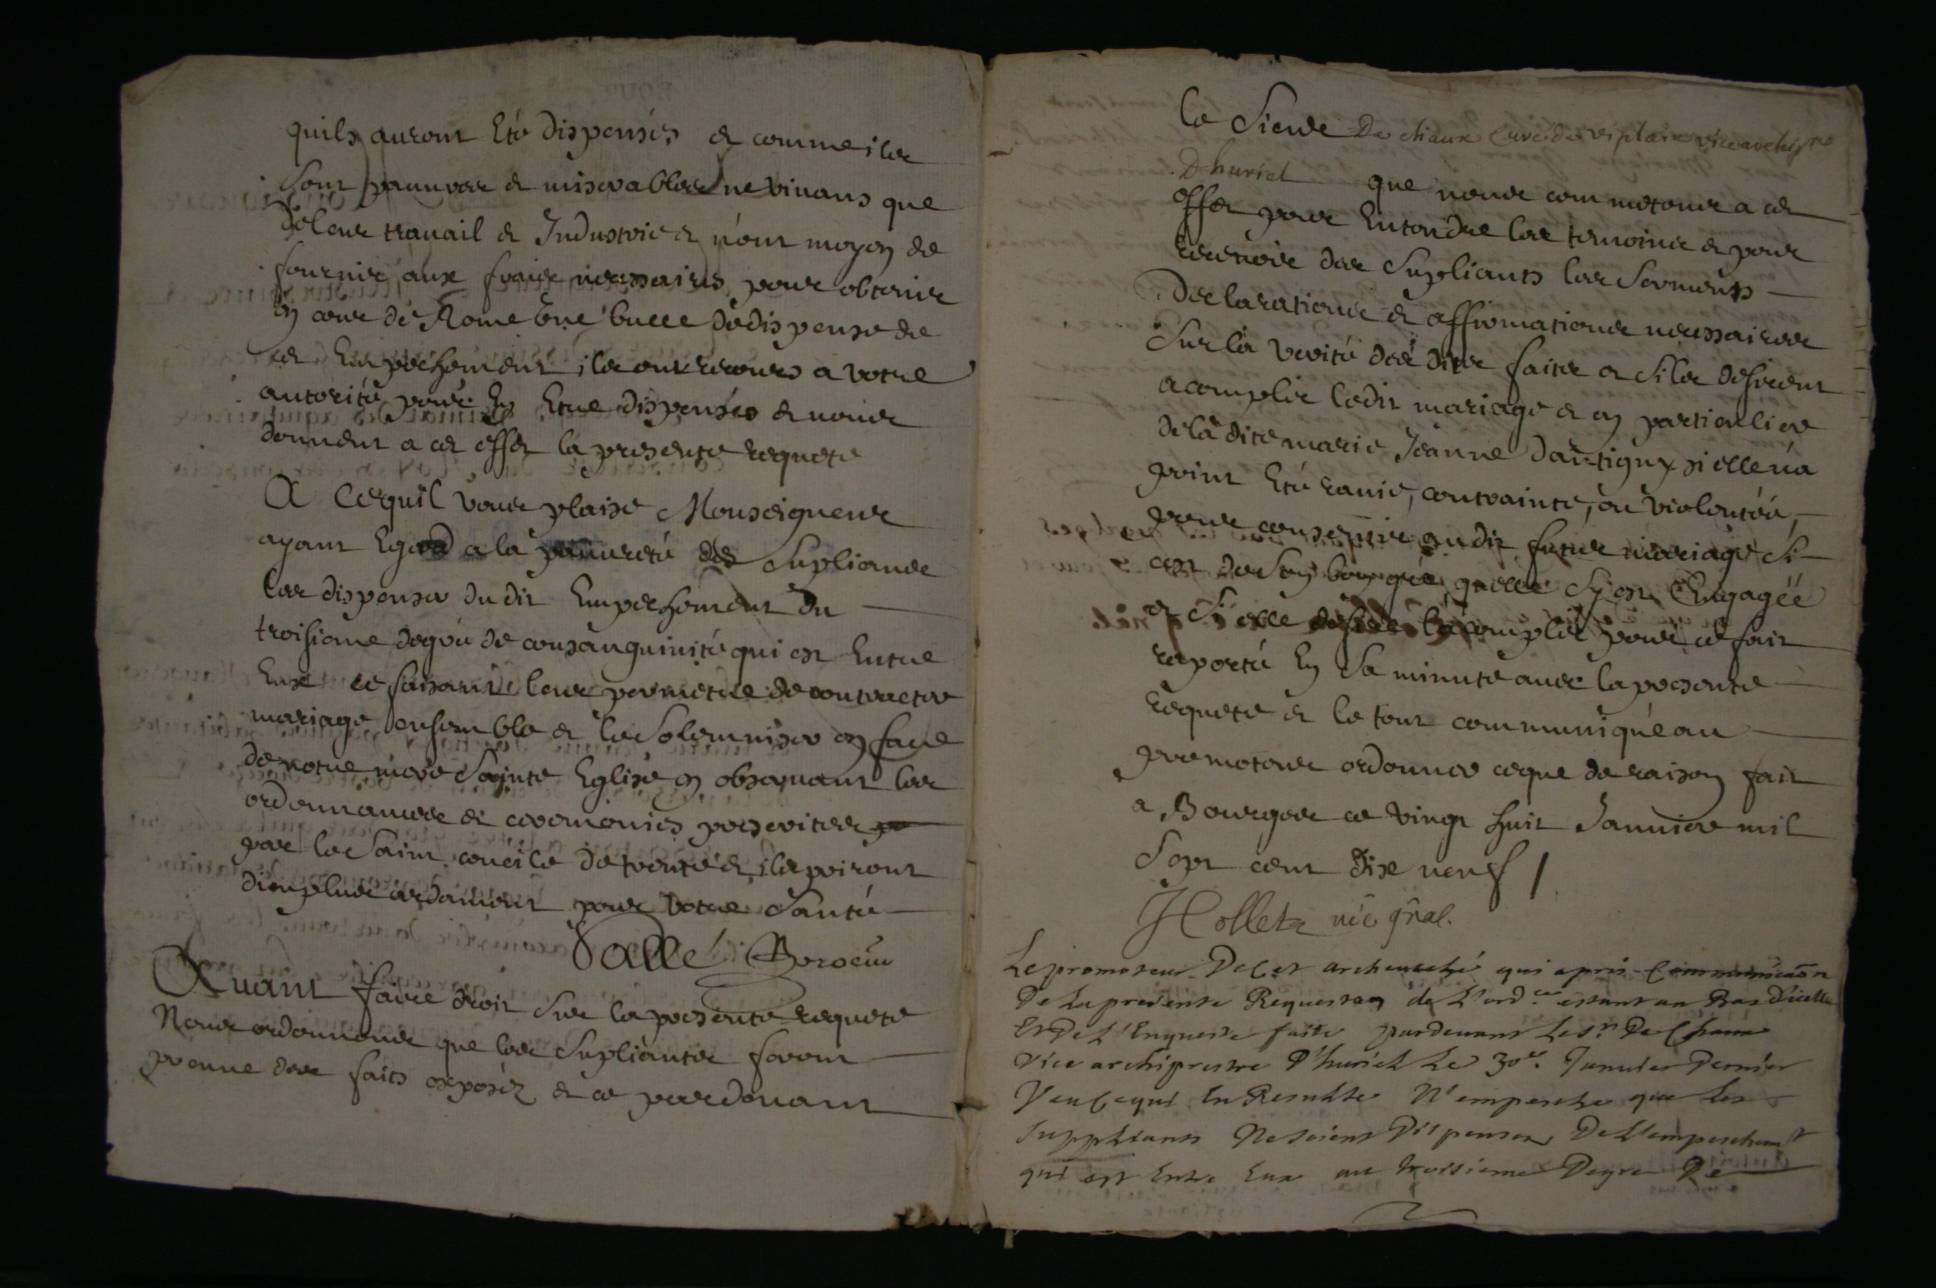 quils auront Eté dispensés et comme ils
sont pauuvres et miserables ne vivans que
de leur trauail et Industrie et n'ont moyen de
fournir aux frais necessaires pour obtenir
en cour de Rome une bulle de dispense de
cet Empeschement ils ont recours a votre
autorité pour En Etre dispensés et nous
donnent a cet effet la presente requete
A Ce quil vous plaise Monseigneur
ayant Egard a la pauureté des Supliants
les dispenser du dit Empeschement du
troisieme degré de consanguinité qui est Entre
Eux ce faisant leur permetre de contracter
mariage ensemble et le Solemniser en face
de notre mere Sainte Eglise en obseruant les
ordonnances et ceremonies prescrites
par le Saint concile de trente et ils priront
dieu plus ardament pour votre Santé
Vallé
Auant faire droit Sur la presente requete
Nous ordonnons que les Supliants feront
preuue des faits exposéz et ce pardeuant
le Sieur De chaux Curé de viplaix vice archip.re
D'huriel que nous commetons a cet
effet pour Entendre les temoins et pour
receuoir des Supliants les Serments
Declarations et affirmations necessaires
Sur la verité des dits faits et Sils desirent
acomplir ledit mariage et en particulier
de la dite marie Jeanne Dartigny si elle n'a
point Eté rauie, contrainte, ou violentée,
pour consentir au dit futur mariage Si
cest de Son bon gré quelle Sy est Engagée
et Si elle desire lacomplir pour ce fait
raporté En La minute auec la presente
requete et le tout communiqué au
promoteur ordonner ce que de raison fait
a Bourges ce vingt huit Januier mil
Sept cent dix neuf /
Hollet vic gñal.
Le promoteur De Cet archeueché qui a pris Communicaon
De La presente Requeste de L'ord.ce estant au Bas D'icelle
Et De L'Enqueste faite pardeuant Le Sr. De Chaux
Vice archiprestre D'huriel Le 30e. Januier Dernier
Veu Ce qui En Resulte N'empesche que Les
Suppliants Ne Soient Dispensez De L'empeschemt
qui est Entre Eux au troisieme Degre De